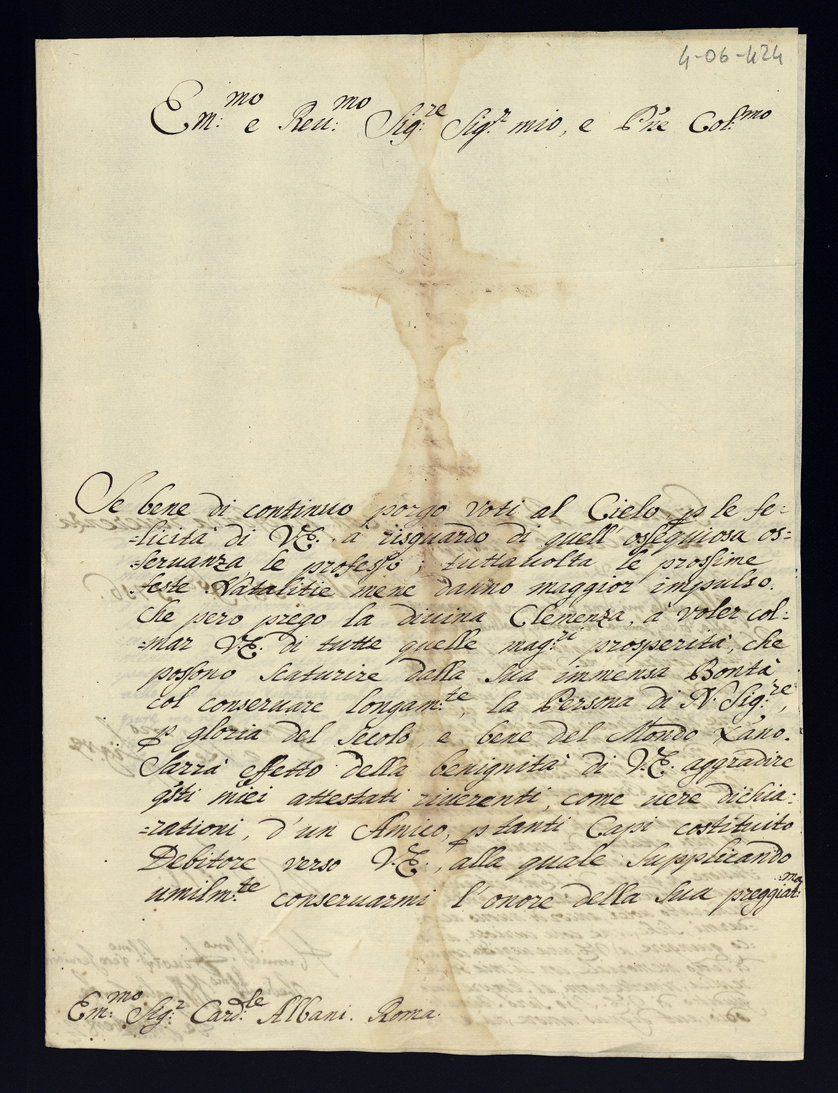 4-06-424
Em:mo e Reu:mo Sig:re Sig:r mio, e P͠ne Col:mo
Se bene di continuo porgo voti al Cielo p le fe-
-licità di V.E. à risguardo di quell ossequiosa os-
-seruanza le professo, tuttauolta le prossime
feste Natalitie mene danno maggior impulso.
Che pero prego la diuina Clemenza, à voler col-
-mar V.E. di tutte quelle mag:ri prosperità, che
possono scaturire dalla sua immensa Bontà,
col conseruare longam:te, la Persona di N. Sig:re,
p gloria del Secolo, e bene del Mondo X͠ano.
Sarrà effetto della benignità di V.E. aggradire
q͠sti miei attestati riuerenti, come uere dichia-
-rationi, d'un Amico, p tanti Capi costituito
Debitore verso V.E., alla quale supplicando
umilm:te conseruarmi l'onore della sua preggiat:ma
Em:mo Sig:r Card:le Albani. Roma.